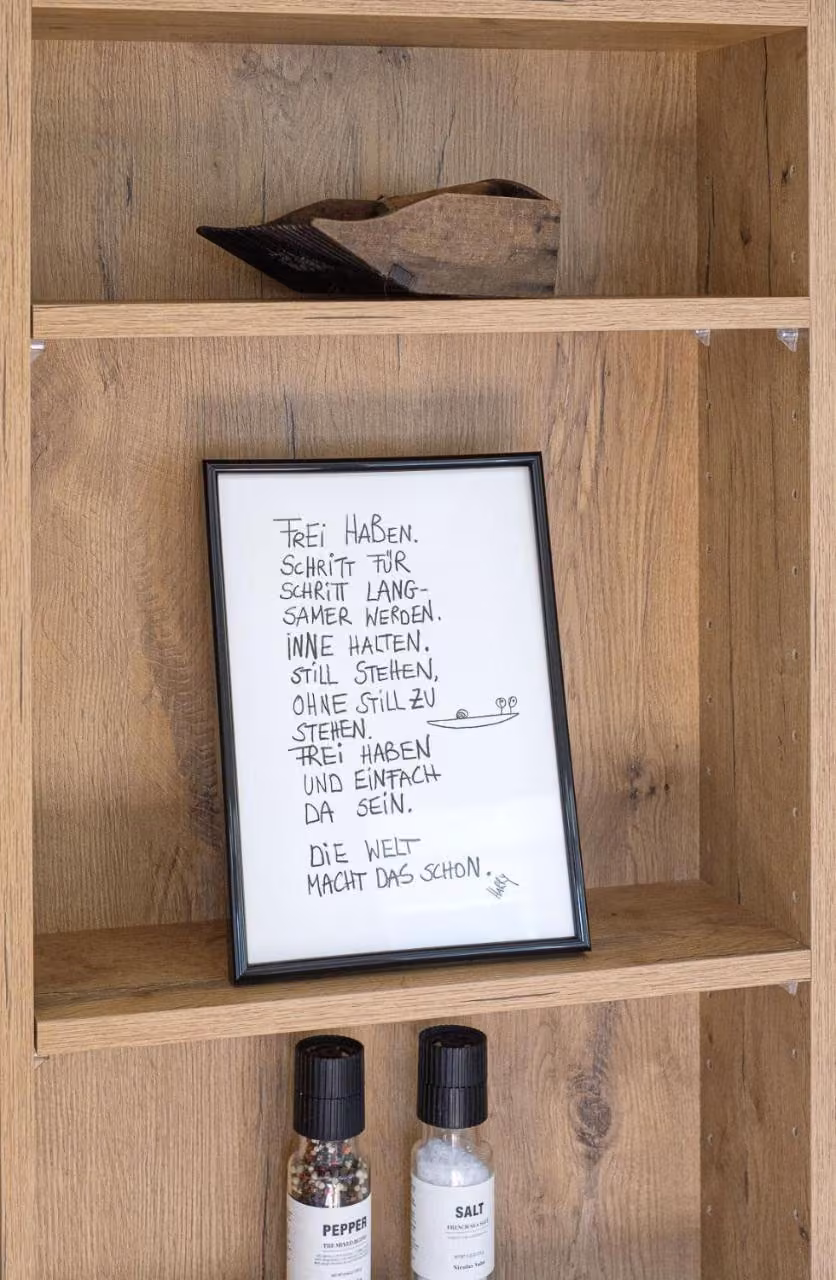 FREI HABEN.
SCHRITT FÜR
SCHRITT LANG-
SAMER WERDEN.
INNE HALTEN.
STILL STEHEN,
OHNE STILL ZU
STEHEN.
FREI HABEN
UND EINFACH
DA SEIN.
DIE WELT
MACHT DAS SCHON.
PEPPER
THE MIXED BLEND
SALT
FRENCH SEA SALT
Nicolas Vahé